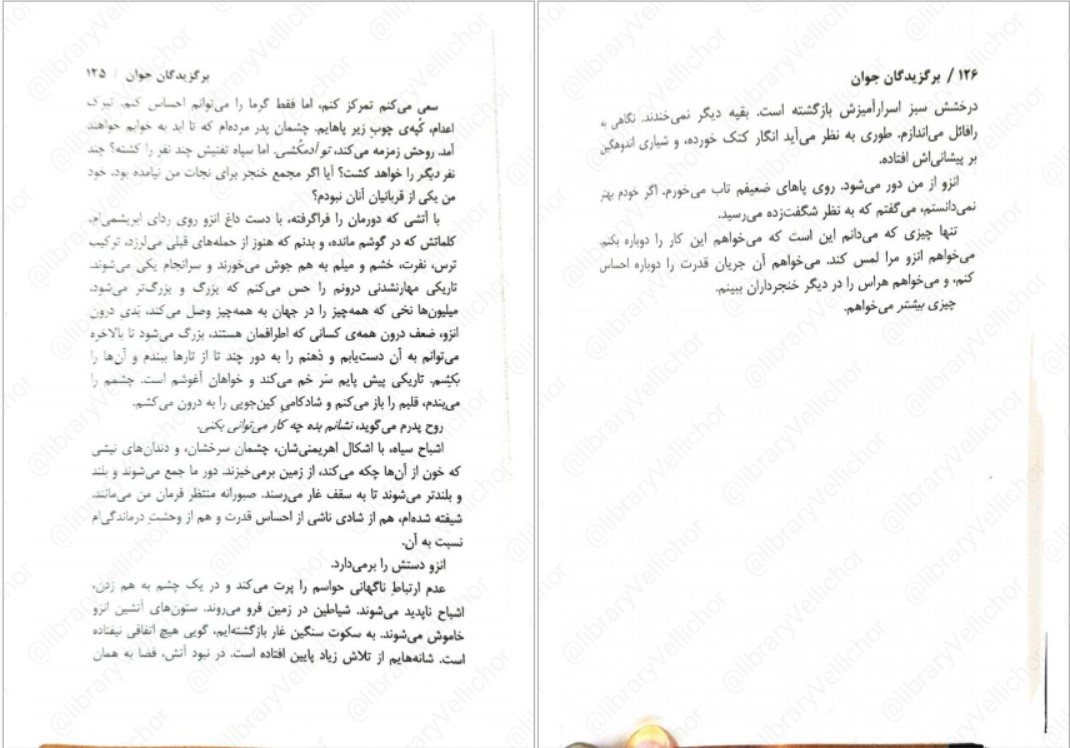 برگزیدگان جوان / ۱۲۵
سعی می‌کنم تمرکز کنم، اما فقط گرما را می‌توانم احساس کنم. تیرک
اعدام، کُپه‌ی چوب زیر پاهایم. چشمان پدر مرده‌ام که تا ابد به خوابم خواهند
آمد. روحش زمزمه می‌کند، تو آدمکُشی. اما سپاه تفتیش چند نفر را کشته؟ چند
نفر دیگر را خواهد کشت؟ آیا اگر مجمع خنجر برای نجات من نیامده بود، خود
من یکی از قربانیان آنان نبودم؟
با آتشی که دورمان را فراگرفته، با دست داغ انزو روی ردای ابریشمی‌ام،
کلماتش که در گوشم مانده، و بدنم که هنوز از حمله‌های قبلی می‌لرزد، ترکیب
ترس، نفرت، خشم و میلم به هم جوش می‌خورند و سرانجام یکی می‌شوند.
تاریکی مهارنشدنی درونم را حس می‌کنم که بزرگ و بزرگ‌تر می‌شود،
میلیون‌ها نخی که همه‌چیز را در جهان به همه‌چیز وصل می‌کند، بَدی درون
انزو، ضعف درون همه‌ی کسانی که اطرافمان هستند، بزرگ می‌شود تا بالاخره
می‌توانم به آن دست‌یابم و ذهنم را به دور چند تا از تارها ببندم و آن‌ها را
بکِشم. تاریکی پیش پایم سَر خم می‌کند و خواهان آغوشم است. چشمم را
می‌بندم، قلبم را باز می‌کنم و شادکامیِ کین‌جویی را به درون می‌کشم.
روح پدرم می‌گوید، نشانم بده چه کار می‌توانی بکنی.
اشباح سیاه، با اشکال اهریمنی‌شان، چشمان سرخشان، و دندان‌های نیشی
که خون از آن‌ها چکه می‌کند، از زمین برمی‌خیزند. دور ما جمع می‌شوند و بلند
و بلندتر می‌شوند تا به سقف غار می‌رسند. صبورانه منتظر فرمان من می‌مانند.
شیفته شده‌ام، هم از شادی ناشی از احساس قدرت و هم از وحشتِ درماندگی‌ام
نسبت به آن.
انزو دستش را برمی‌دارد.
عدم ارتباطِ ناگهانی حواسم را پرت می‌کند و در یک چشم به هم زدن،
اشباح ناپدید می‌شوند. شیاطین در زمین فرو می‌روند. ستون‌های آتشین انزو
خاموش می‌شوند. به سکوت سنگین غار بازگشته‌ایم، گویی هیچ اتفاقی نیفتاده
است. شانه‌هایم از تلاش زیاد پایین افتاده است. در نبود آتش، فضا به همان
۱۲۶ / برگزیدگان جوان
درخشش سبز اسرارآمیزش بازگشته است. بقیه دیگر نمی‌خندند. نگاهی به
رافائل می‌اندازم. طوری به نظر می‌آید انگار کتک خورده، و شیاری اندوهگین
بر پیشانی‌اش افتاده.
انزو از من دور می‌شود. روی پاهای ضعیفم تاب می‌خورم. اگر خودم بهتر
نمی‌دانستم، می‌گفتم که به نظر شگفت‌زده می‌رسید.
تنها چیزی که می‌دانم این است که می‌خواهم این کار را دوباره بکنم.
می‌خواهم انزو مرا لمس کند. می‌خواهم آن جریان قدرت را دوباره احساس
کنم، و می‌خواهم هراس را در دیگر خنجرداران ببینم.
چیزی بیشتر می‌خواهم.
@libraryVellichor